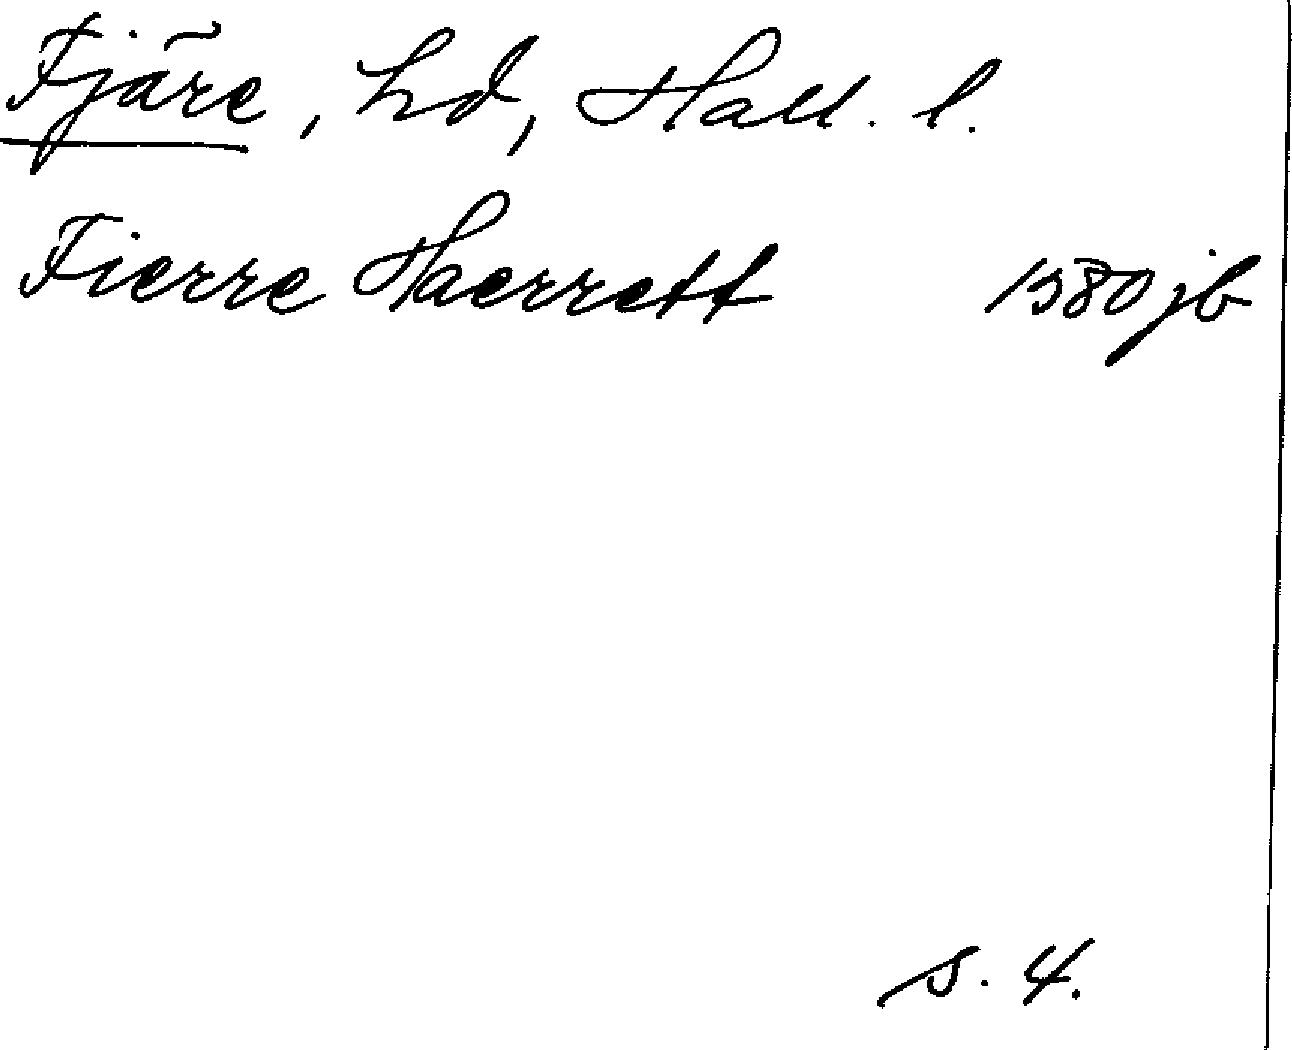 Fjäre, hd, Hall. l.
Fierre Haerrett 1580 jb
s. 4.